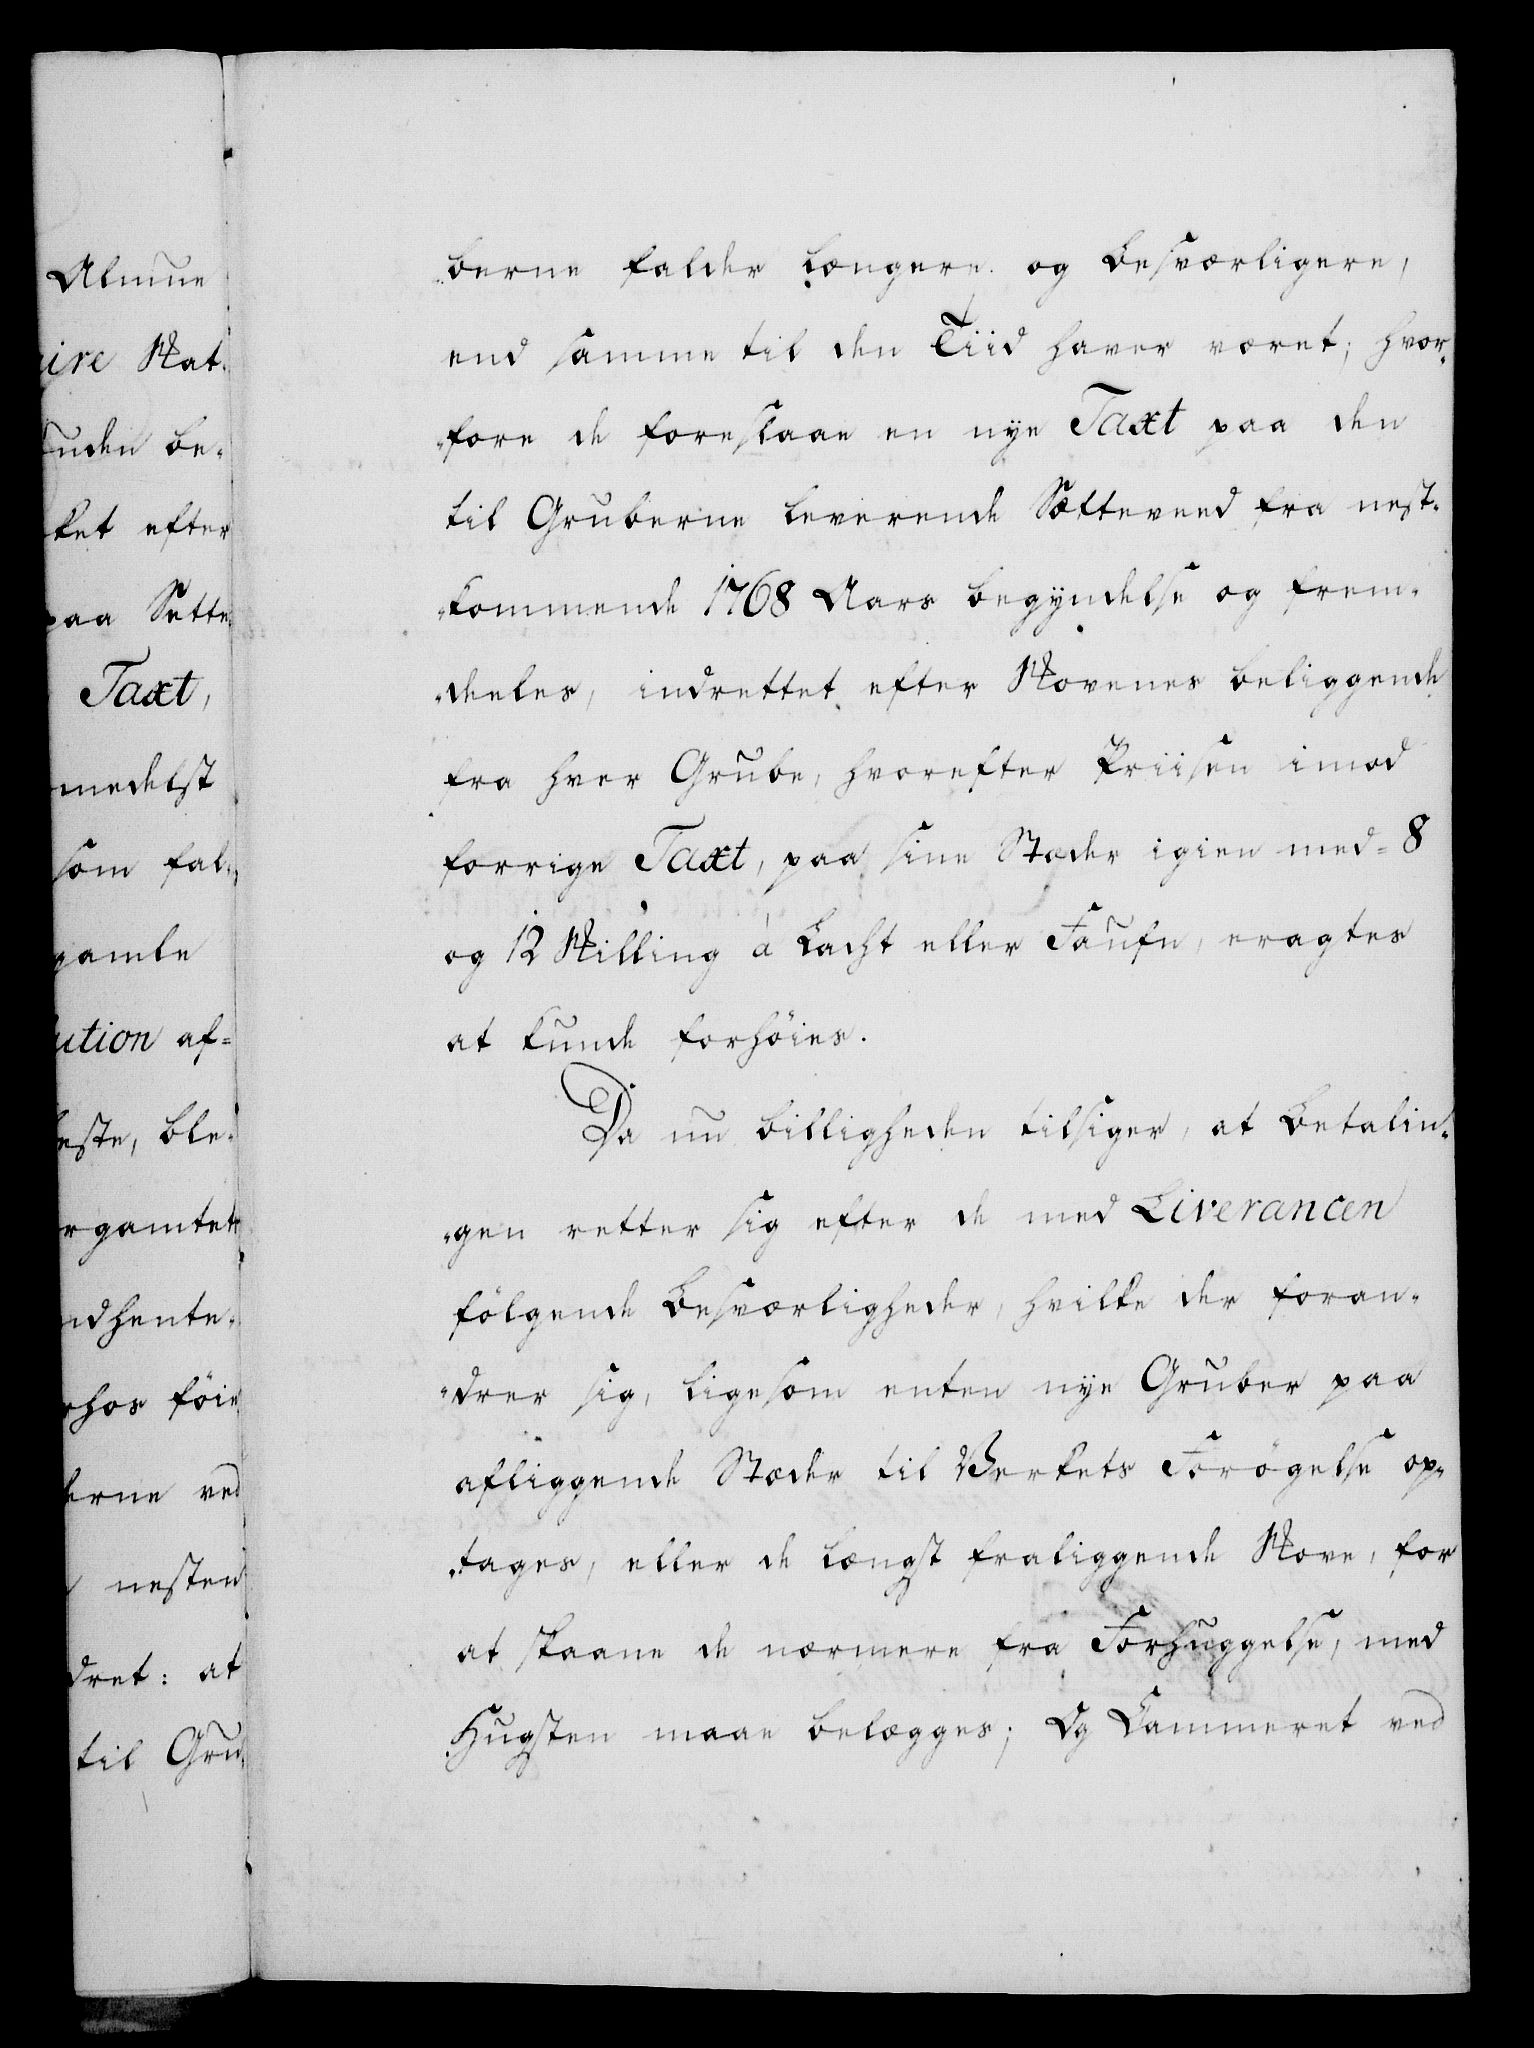 Almue
aire Nat-
unden be-
ket efter
paa Sette
Taxt,
medelst
som fal-
gamle
ution af-
este, ble-
rgamtet
ndhente-
hos föie
erne ved
nesten
dret: at
til Gru-
berne falder længere og besværligere,
end samme til den Tiid haver været; hvor-
fore de foreslaae en nye Taxt paa den
til Gruberne leverende Sætteveed fra nest-
kommende 1768 Aars begyndelse og frem-
deeles, indrettet efter Skovenes beliggende
fra hver Grube, hvorefter Priisen imod
forrige Taxt, paa sine Stæder igien med 8
og 12 Skilling à Lacht eller Faufn, eragtes
at kunde forhöies.
Da nu billigheden tilsiger, at Betalin-
gen retter sig efter de med Liverancen
fölgende Besværligheder, hvilke der foran-
drer sig, ligesom enten nye Gruber paa
afliggende Stæder til Verkets Forögelse op-
tages, eller de længst fraliggende Skove, for
at skaane de nærmere fra Forhuggelse, med
Hugsten maae belægges; Og Kammeret ved